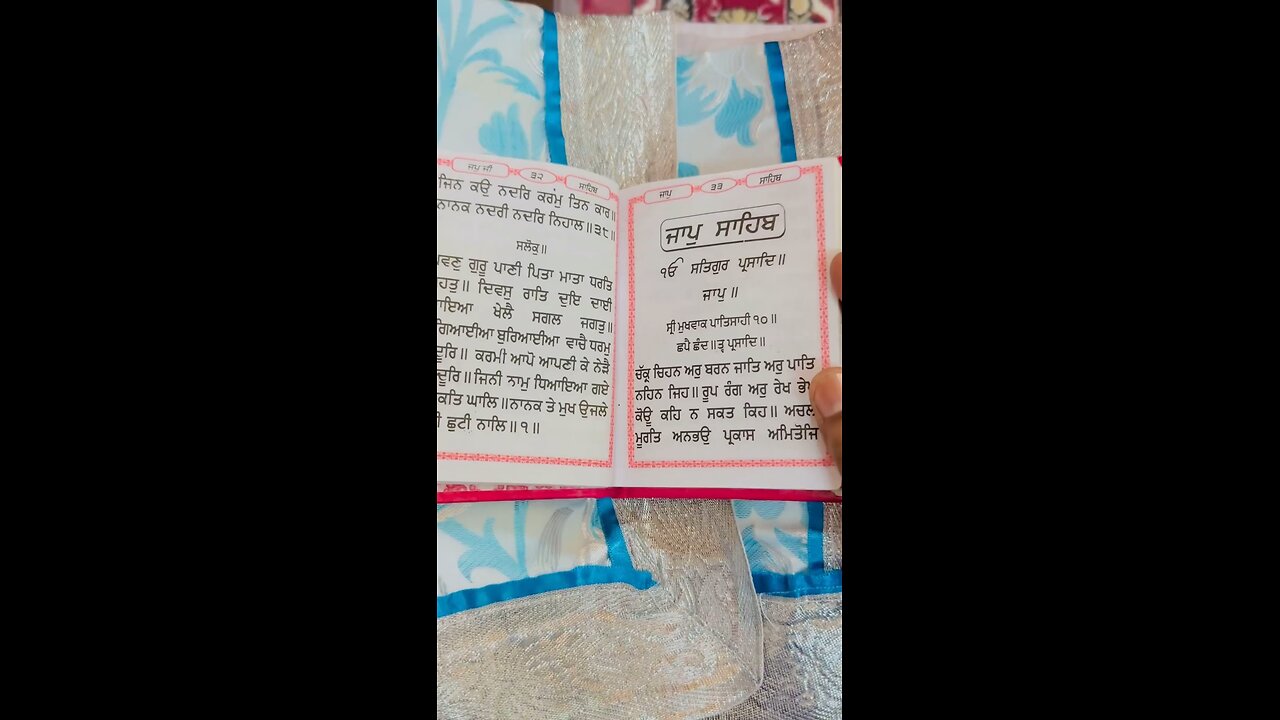 ਜਪੁ ਜੀ ੩੨ ਸਾਹਿਬ
ਜਿਨ ਕਉ ਨਦਰਿ ਕਰਮੁ ਤਿਨ ਕਾਰ॥
ਨਾਨਕ ਨਦਰੀ ਨਦਰਿ ਨਿਹਾਲ॥੩੮॥
ਸਲੋਕੁ॥
ਪਵਣੁ ਗੁਰੂ ਪਾਣੀ ਪਿਤਾ ਮਾਤਾ ਧਰਤਿ
ਦਿਵਸੁ ਰਾਤਿ ਦੁਇ ਦਾਈ
ਖੇਲੈ ਸਗਲ ਜਗਤੁ॥
ਬੁਰਿਆਈਆ ਵਾਚੈ ਧਰਮੁ
ਕਰਮੀ ਆਪੋ ਆਪਣੀ ਕੇ ਨੇੜੈ
ਦੂਰਿ॥ ਜਿਨੀ ਨਾਮੁ ਧਿਆਇਆ ਗਏ
ਘਾਲਿ॥ਨਾਨਕ ਤੇ ਮੁਖ ਉਜਲੇ
ਛੁਟੀ ਨਾਲਿ॥੧॥
ਜਾਪੁ ੩੩ ਸਾਹਿਬ
ਜਾਪੁ ਸਾਹਿਬ
ੴ ਸਤਿਗੁਰ ਪ੍ਰਸਾਦਿ॥
ਜਾਪੁ॥
ਸ੍ਰੀ ਮੁਖਵਾਕ ਪਾਤਿਸਾਹੀ ੧੦॥
ਛਪੈ ਛੰਦ॥ਤ੍ਵ ਪ੍ਰਸਾਦਿ॥
ਚੱਕ੍ਰ ਚਿਹਨ ਅਰੁ ਬਰਨ ਜਾਤਿ ਅਰੁ ਪਾਤਿ
ਨਹਿਨ ਜਿਹ॥ ਰੂਪ ਰੰਗ ਅਰੁ ਰੇਖ ਭੇਖ
ਕੋਊ ਕਹਿ ਨ ਸਕਤ ਕਿਹ॥ ਅਚਲ
ਮੂਰਤਿ ਅਨਭਉ ਪ੍ਰਕਾਸ ਅਮਿਤੋਜਿ